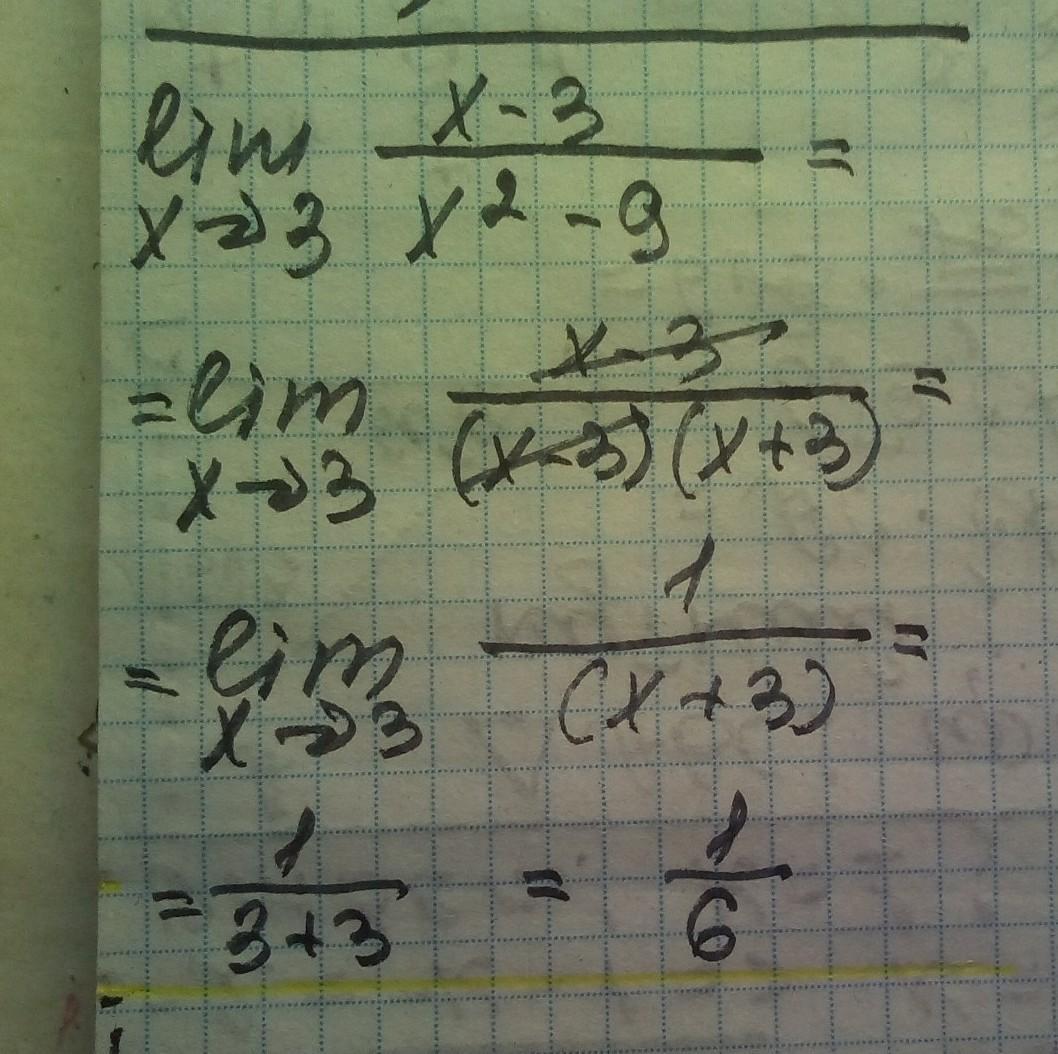 lim x→3 (x-3)/(x² - 9) =
= lim x→3 (x-3)/((x-3)(x+3)) =
= lim x→3 1/(x+3) =
= 1/(3+3) = 1/6